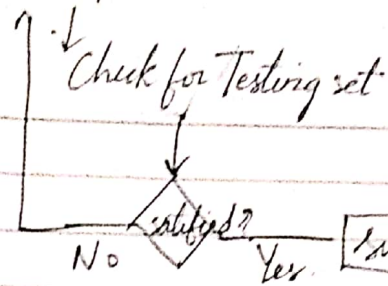 Check for Testing set
satisfied?
No
Yes